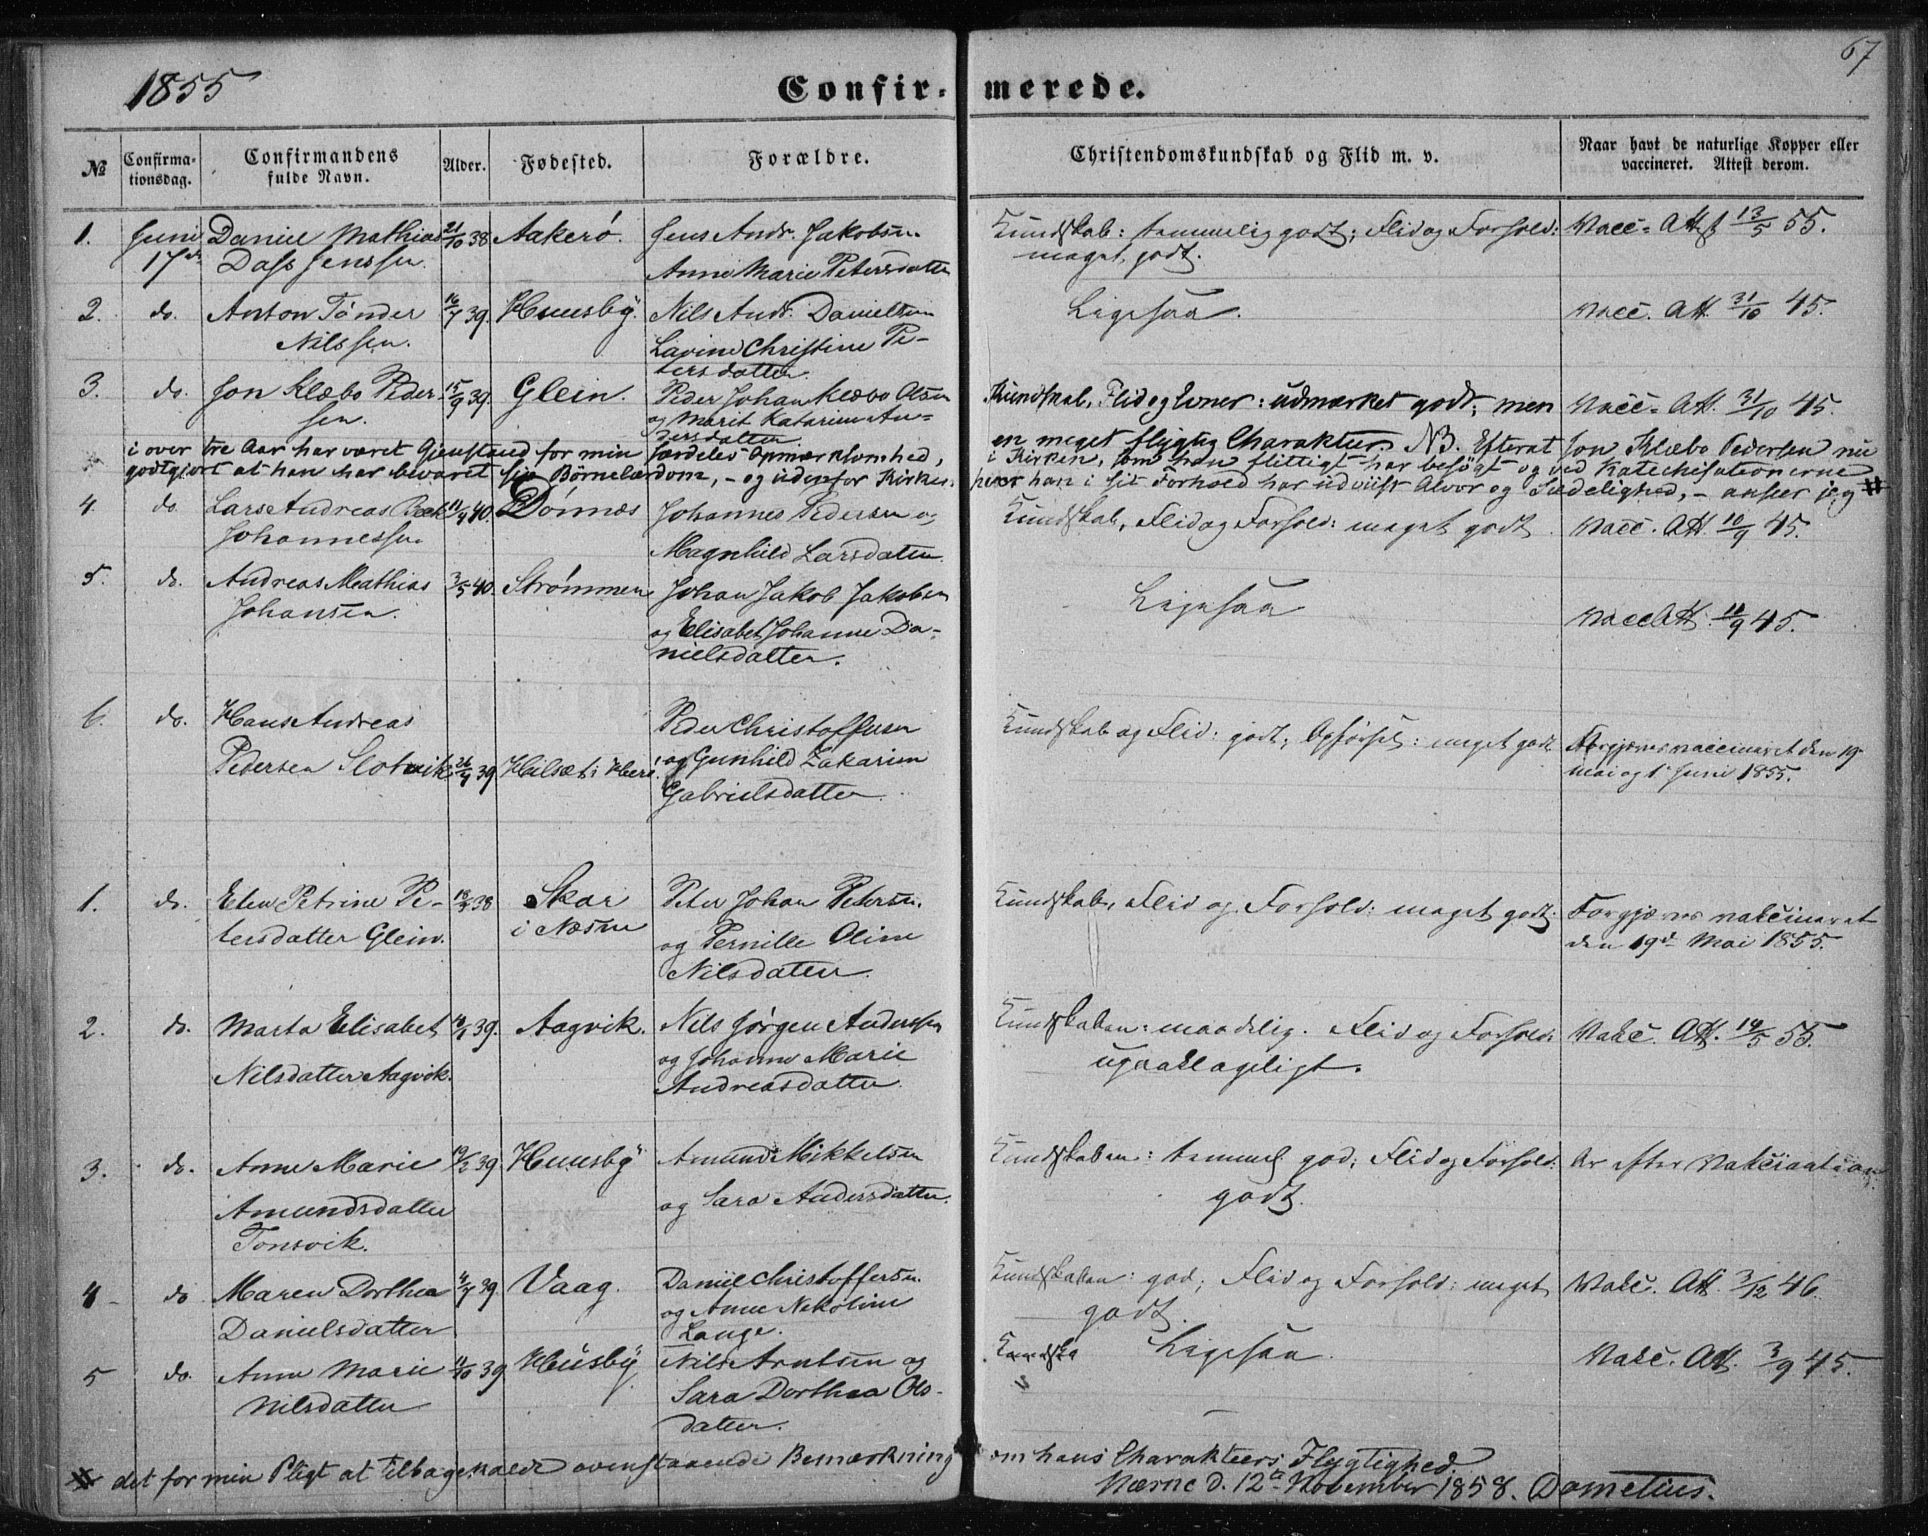 67
1855
Confir- merede.
№ Confirma-
tionsdag. Confirmandens
fulde Navn. Alder. Fødested. Forældre. Christendomskundskab og Flid m. v. Naar havt de naturlige Kopper eller
vaccineret. Attest derom.
1. Juni Daniel Mathias 21/10 38 Aakerö. Jens Andr. Jakobsen Kundskab: temmelig godt; Flid og Forhold: Vacc. Att. 13/5 55.
17de Dass Jenssen. Anne Marie Petersdatter meget godt.
2. do. Anton Tönder 16/7 39. Huusby. Nils Andr. Danielsen Ligesaa. Vacc. Att. 31/10 45.
Nilssen. Lavine Christine Pe-
tersdatter.
3. do. Jon Klæbo Peder- 15/9 39. Glein. Peder Johan Klæbo Olsen Kundskab, Flid og Evner: udmærket godt; men Vacc. Att. 31/10 45.
sen. og Marit Katarina An-
dersdatter en meget flygtig Charakter. NB. Efterat Jon Klæbo Pedersen nu
i over tre Aar har været Gjenstand for min særdeles Opmærksomhed, i Kirken, som han flittigt har besøgt og ved Katechisationerne
godtgjort at han har bevaret sin Børnelærdom, - og udenfor Kirken, hvor han i sit Forhold har udviist Alvor og Sædelighed, - anseer jeg #
4. do. Lars Andreas Beck 11/4 40. Dönnæs Johannes Pedersen og Kundskab, Flid og Forhold: meget godt. Vacc. Att 10/9 45.
Johannessen Magnhild Larsdatter.
5. do. Andreas Mathias 3/5 40. Strömmen Johan Jakob Jakobsen Ligesaa Vacc. Att. 11/9 45.
Johansen. og Elisabet Johanne Da-
nielsdatter.
6. do. Hans Andreas Peder Christoffersen Kundskab og Flid: godt; Opførsel: meget godt. Forgjæves vaccineret den 19
Pedersen Slotvik 26/9 39 Hilsæt i Herø og Gunhild Zakarine Mai og 1. Juni 1855.
Gabrielsdatter.
1. do. Elen Petrine Pe- 38 Skar Peter Johan Petersen Kundskab, Flid og Forhold: meget godt. Forgjæves vakcineret
tersdatter Glein. i Næsne og Pernille Oline den 19de Mai 1855.
Nilsdatter.
2. do. Marta Elisabet 39. Aagvik. Nils Jörgen Anderssen Kundskaben: maadelig. Flid og Forhold: Vakc. Att. 14/5 55.
Nilsdatter Aagvik. og Johanne Marie upaaklageligt.
Andreasdatter.
3. do. Anne Marie 19/2 39 Huusby Amund Mikkelsen Kundskaben: temmel. god; Flid og Forhold: Ar efter Vakcination.
Amundsdatter og Sara Andersdatter. godt.
Tonsvik.
4 do Maren Dorthea 39 Vaag. Daniel Christoffersen Kundskaben: god; Flid og Forhold: meget Vakc. Att. 3/12 46.
Danielsdatter og Anne Nikoline godt.
Lange.
5 do. Anne Marie 11/10 39 Huusby Nils Arntsen og Kundska Ligesaa. Vakc. Att. 3/9 45.
Nilsdatter Sara Dorthea Ols-
datter.
# det for min Pligt at tilbagekalde ovenstaaende Bemærkning om hans Charakteers Flygtighed.
Næsne d. 12te November 1858. Dometius.